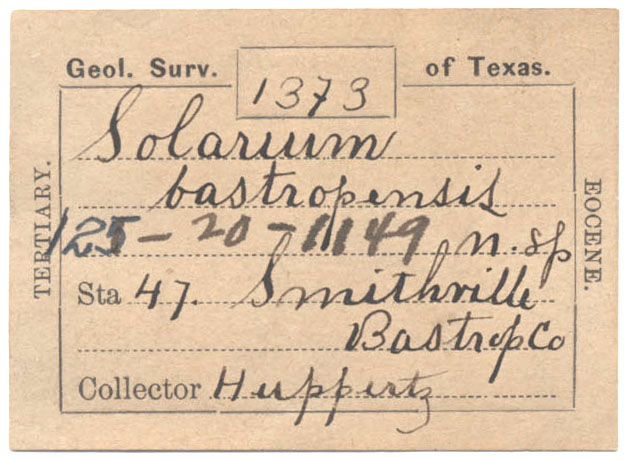 Geol. Surv. 1373 of Texas.
Solarium
bastropensis
125-20-1149 n. sp
Sta 47. Smithville
Bastrop Co
Collector Huppertz
TERTIARY.
EOCENE.